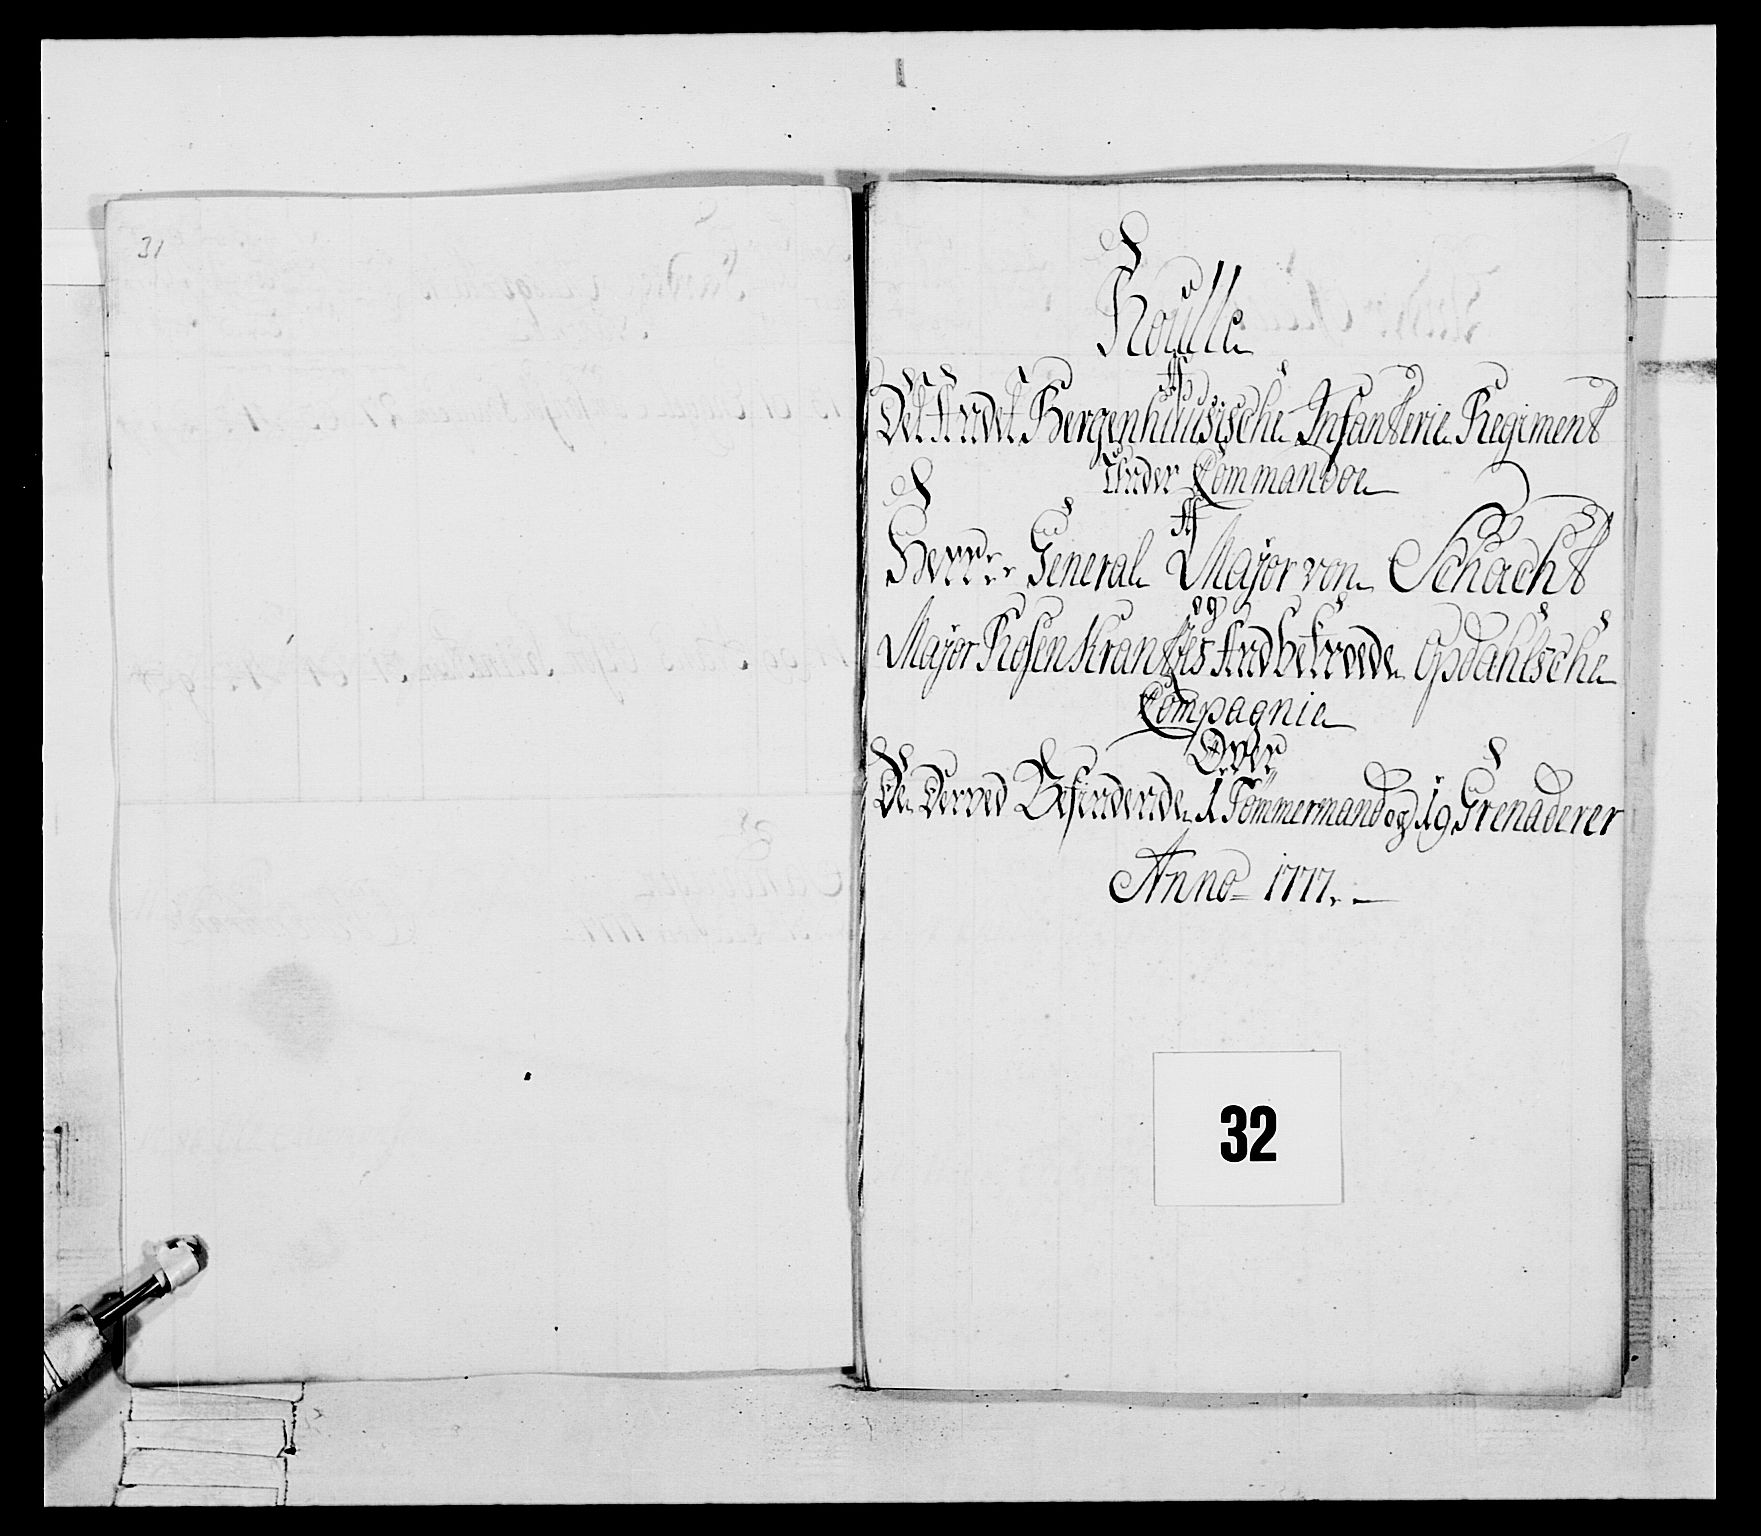 31
Roulle
Af
Det Andet Bergenhuusische Infanterie Regiment
Under Commandoe
Af
Herr General Major von Schacht
og
Major Rosenkrantzes Andbetroede Opdahlsche
Compagnie
Over
De Derved Befindende 1 Tömmermand og 19 Grenaderer
Anno 1777.
32